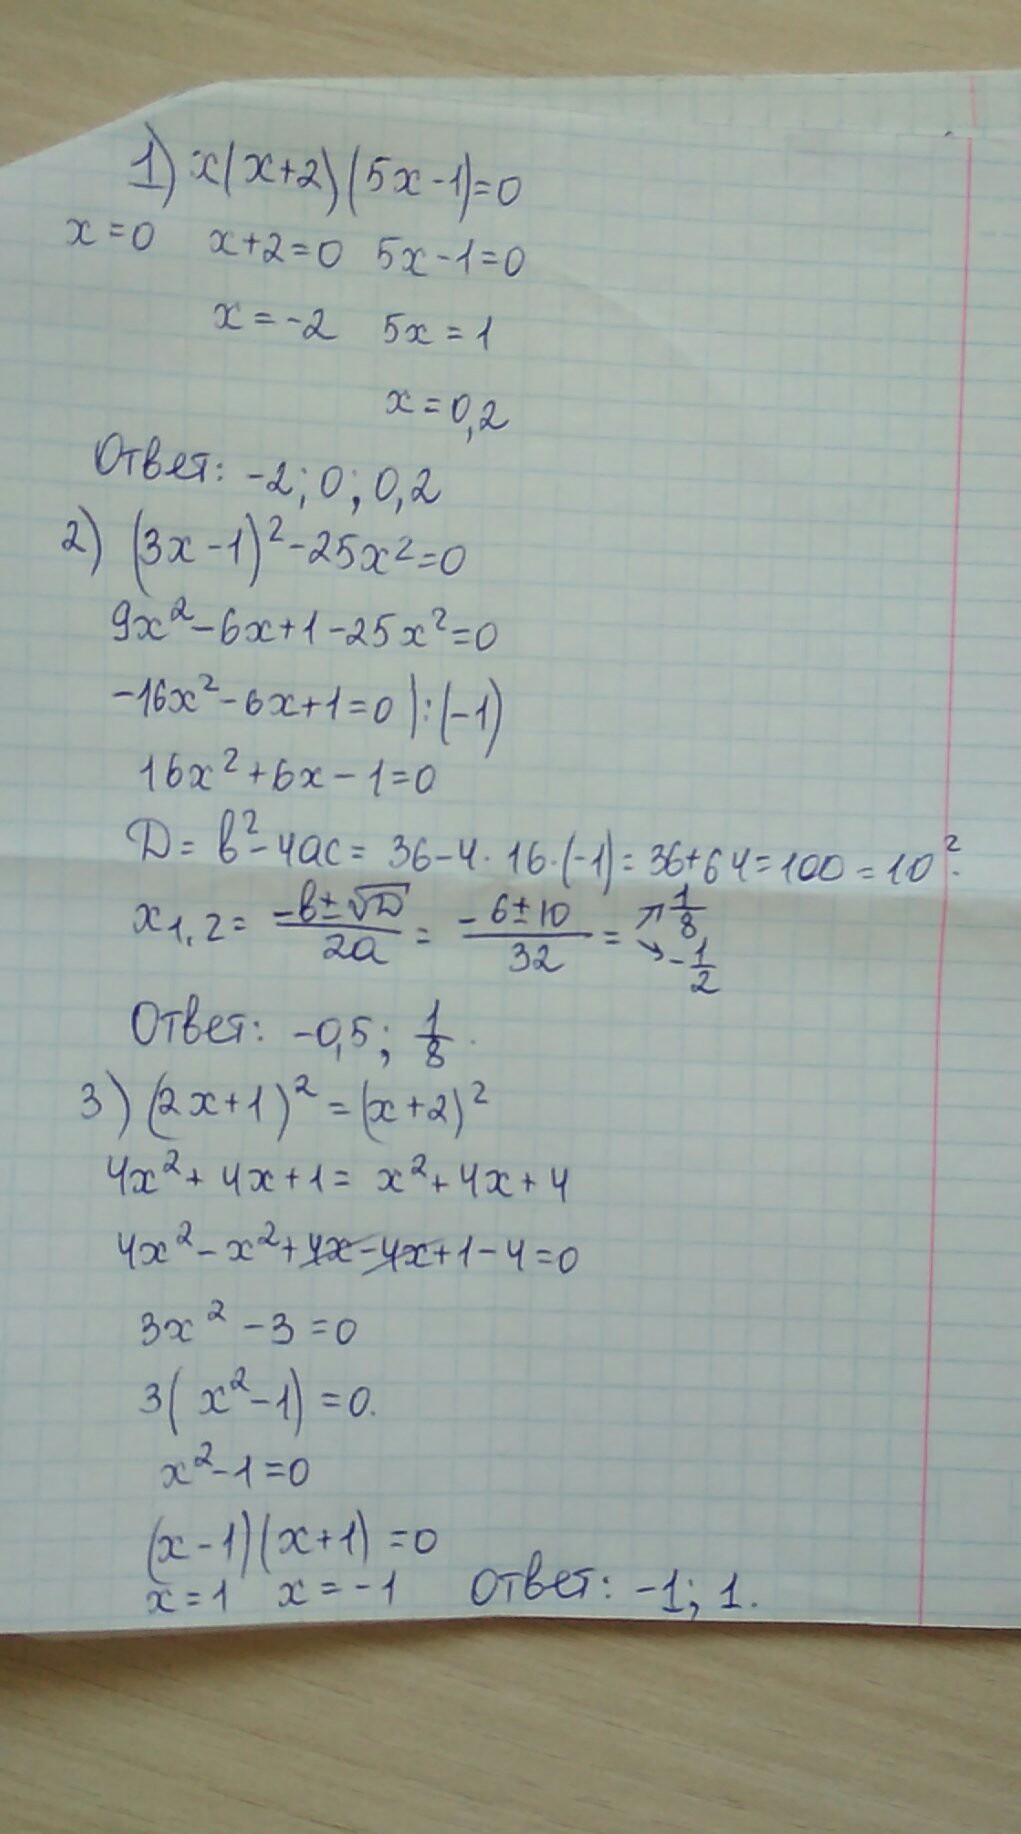 1) x(x+2)(5x-1)=0
x=0 x+2=0 5x-1=0
x=-2 5x=1
x=0,2
Ответ: -2; 0; 0,2
2) (3x-1)²-25x²=0
9x²-6x+1-25x²=0
-16x²-6x+1=0 |:(-1)
16x²+6x-1=0
D= b²-4ac= 36-4·16·(-1)=36+64=100=10².
x1,2= (-b±√D)/2a = (-6±10)/32 = ↗ 1/8 ↘ -1/2
Ответ: -0,5; 1/8.
3) (2x+1)²=(x+2)²
4x²+4x+1= x²+4x+4
4x²-x²+4x-4x+1-4=0
3x²-3=0
3(x²-1)=0.
x²-1=0
(x-1)(x+1)=0
x=1 x=-1 Ответ: -1; 1.